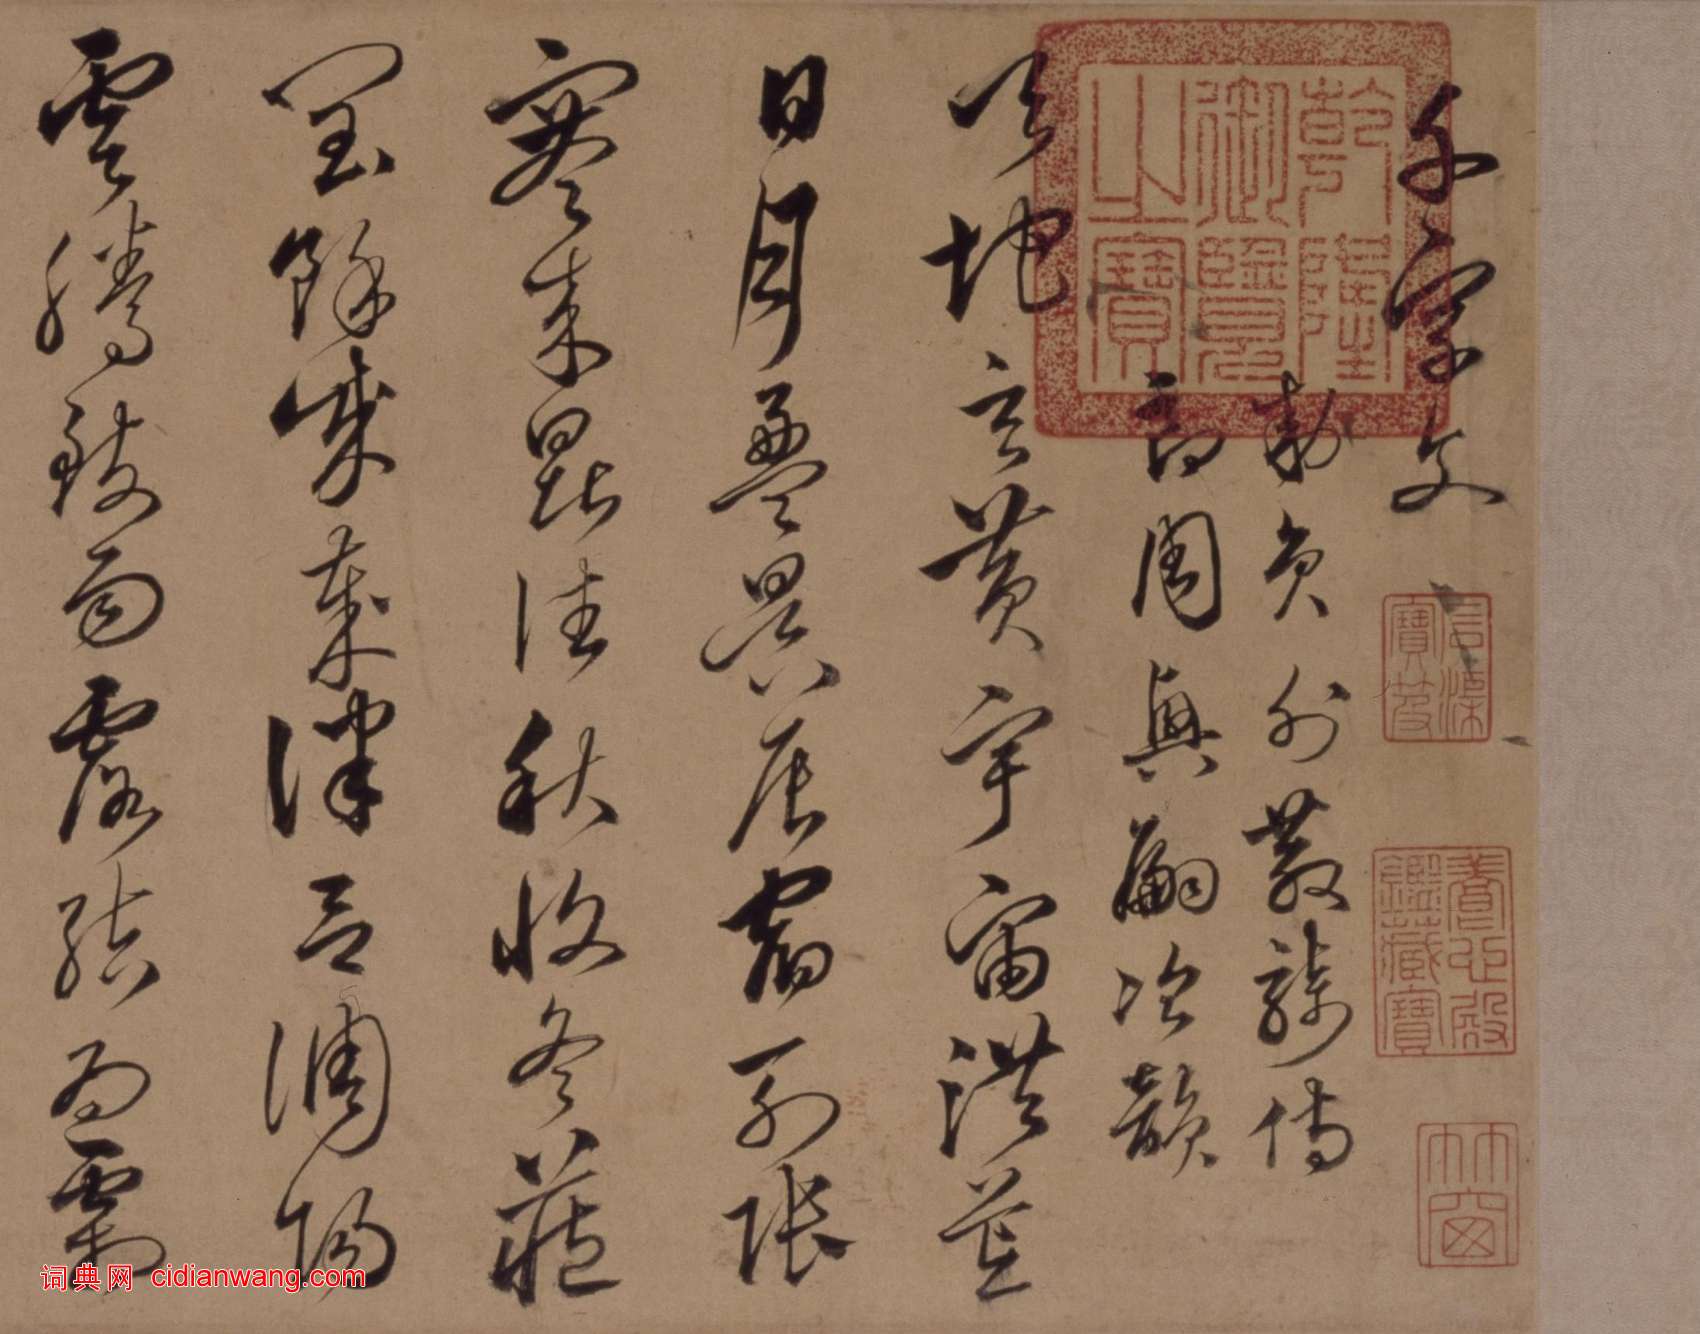 千字文
敕員外散騎侍
郎周興嗣次韻
天地玄黃宇宙洪荒
日月盈昃辰宿列張
寒來暑往秋收冬藏
閏餘成歲律呂調陽
雲騰致雨露結為霜
乾隆御覽之寶
石渠寶笈
養心殿鑑藏寶
词典网 cidianwang.com